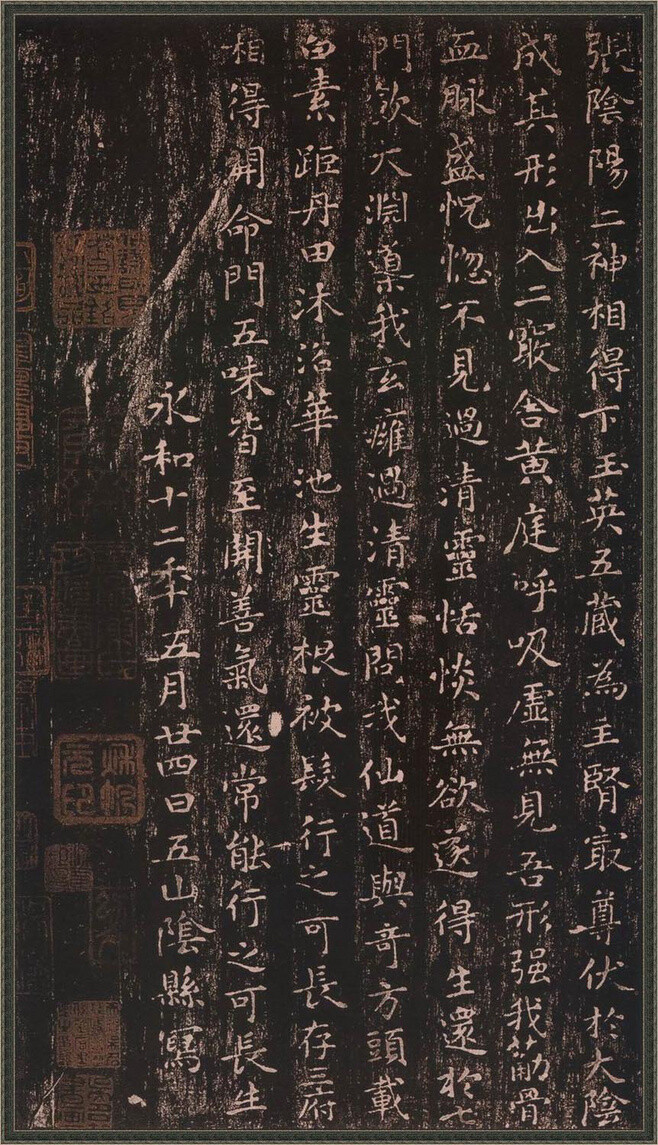 張陰陽二神相得下玉英五藏為主腎㝡尊伏於大陰
成其形出入二竅舍黃庭呼吸虛無見吾形强我筋骨
血脉盛恍惚不見過清靈恬惔無欲遂得生還於七
門飲大淵導我玄癰過清靈問我仙道與奇方頭載
白素距丹田沐浴華池生靈根被髮行之可長存三府
相得開命門五味皆至開善氣還常能行之可長生
永和十二年五月廿四日五山陰縣寫